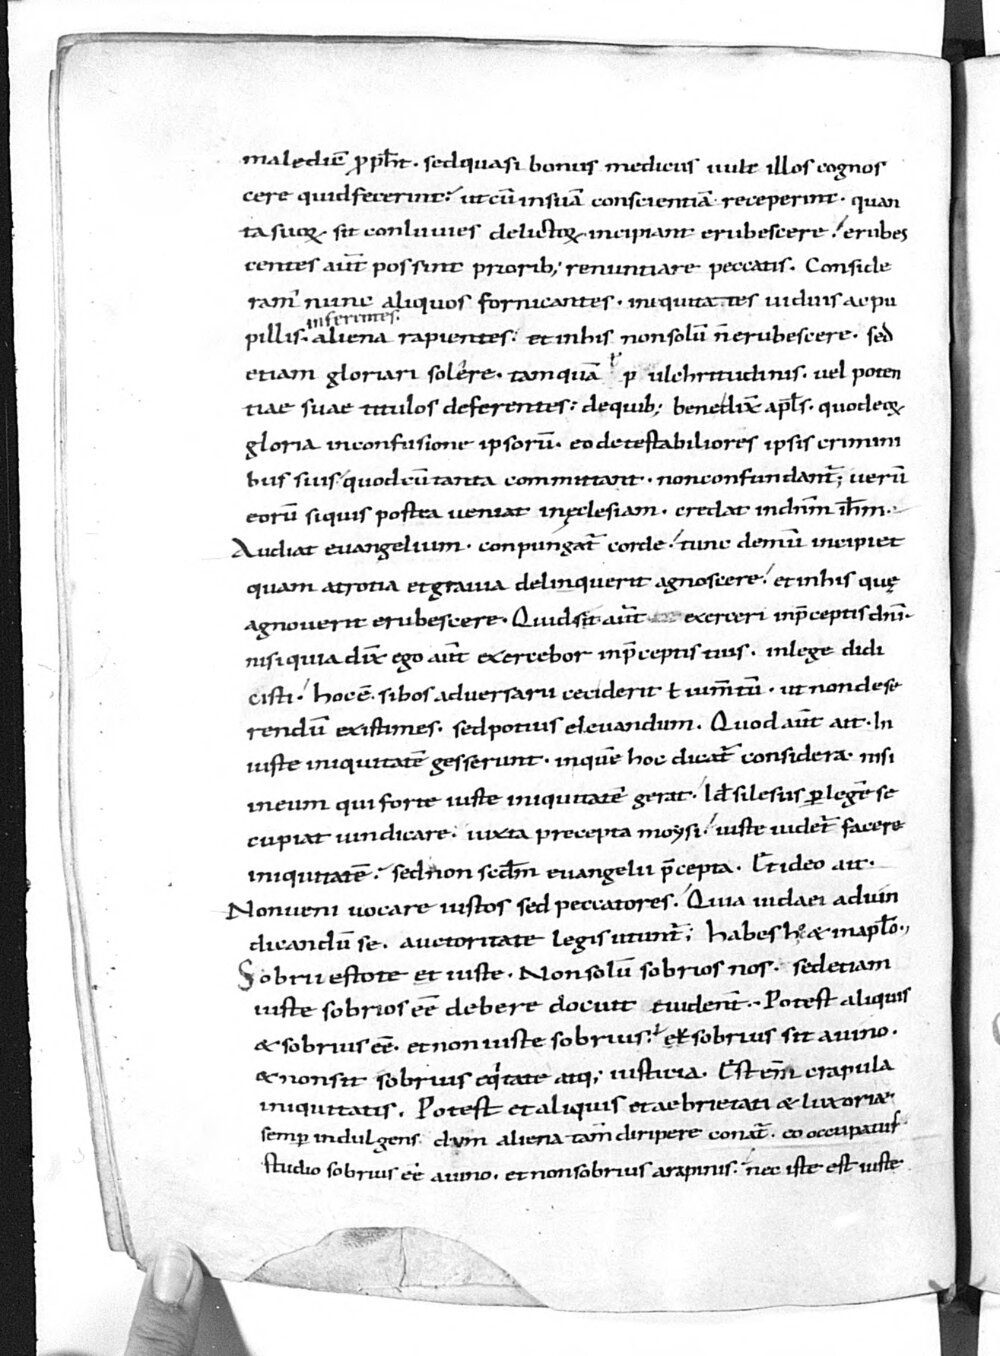 maledic̄ ꝓph̄t. sed quasi bonus medicus uult illos cognos
cere quid fecerint: ut cū in suā conscientiā receperint. quan
ta suoꝝ sit conluuies delictoꝝ incipiant erubescere. erubes
centes aūt possint priorib; renuntiare peccatis. Conside
ram̄ nunc aliquos fornicantes. iniquitates uiduis ac pu
inferentes.
pillis. aliena rapientes: et in his non solū n̄ erubescere. sed
etiam gloriari solere. tamquā p ulchritudinis. uel poten
tiae suae titulos deferentes: de quib; bene dix̄ apl̄s. quod eoꝝ
gloria in confusione ipsorū. eo detestabiliores ipsis crimini
bus suis quod cū tanta committant. non confundant̄; uerū
eorū siquis postea ueniat in ęclesiam. credat in dn̄m ih̄m.
Audiat euangelium. conpungat̄ corde. tunc demū incipiet
quam atrotia et grauia delinquerit agnoscere. et in his quę
agnouerit erubescere. Quid sit aūt exerceri in p̄ceptis dn̄i.
nisi quia dix̄ ego aūt exercebor in p̄ceptis tuis. in lege didi
cisti. hoc ē. si bos aduersarii ceciderit ł ium̄tū. ut non dese
rendū existimes. sed potius eleuandum. Quod aūt ait. In
iuste iniquitatē gesserunt. in quē hoc dicat̄ considera. nisi
in eum qui forte iuste iniquitatē gerat. Id silesus ꝑ legē se
cupiat uindicare. iuxta precepta moysi. iuste uidet̄ facere
iniquitatē. sed non scd̄m euangelii p̄cepta. Et ideo ait.
Non ueni uocare iustos sed peccatores. Quia iudaei ad uin
dicandū se. auctoritate legis utunt̄; habes h & in aplo.,
Sobrii estote et iuste. Non solū sobrios nos. sed etiam
iuste sobrios eē debere docuit euident̄. Potest aliquis
& sobrius eē. et non iuste sobrius: sobrius sit a uino.
& non sit sobrius eqitate atq; iusticia. Est eni crapula
iniquitatis. Potest et aliquis et aebrietati & luxoriae
semp indulgens dum aliena tam̄ diripere conat̄. eo occupatus
studio sobrius eē a uino. et non sobrius a rapinis. nec iste est iuste